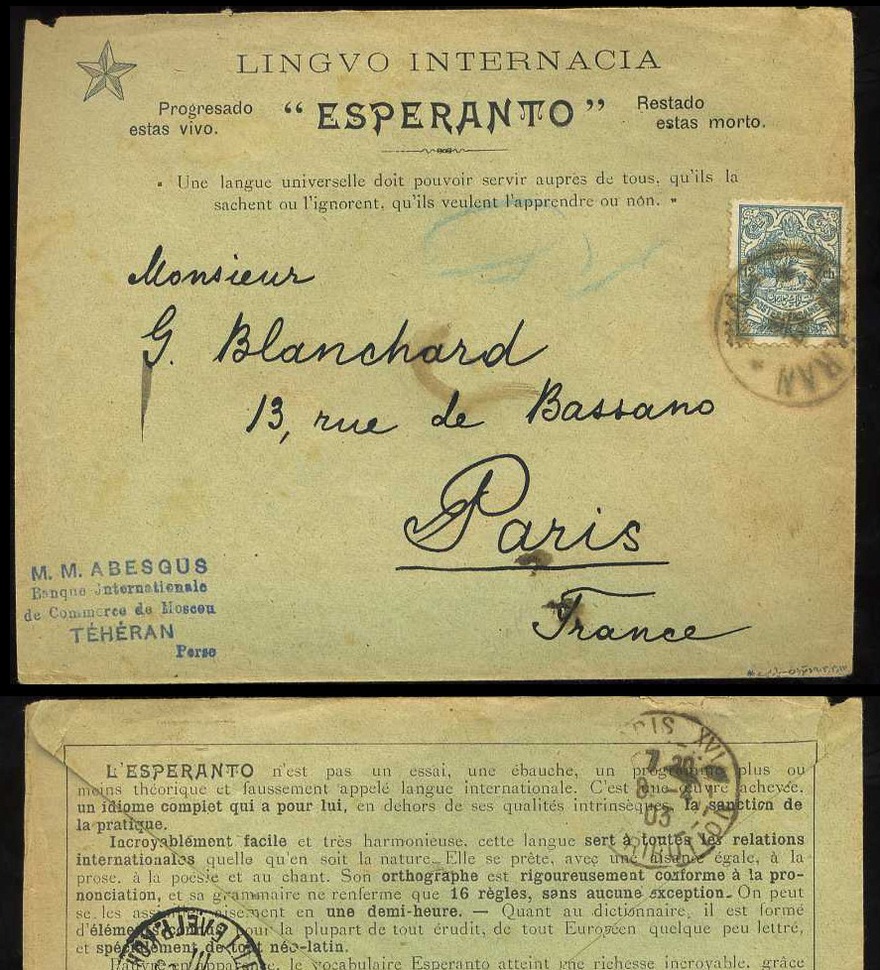 LINGVO INTERNACIA
Progresado
estas vivo.
“ ESPERANTO ”
Restado
estas morto.
" Une langue universelle doit pouvoir servir auprès de tous, qu'ils la
sachent ou l'ignorent, qu'ils veulent l'apprendre ou non. "
Monsieur
G. Blanchard
13, rue de Bassano
Paris
France
M. M. ABESGUS
Banque Internationale
de Commerce de Moscou
TÉHÉRAN
Perse
RAN
L'ESPERANTO n'est pas un essai, une ébauche, un programme plus ou
moins théorique et faussement appelé langue internationale. C'est une œuvre achevée,
un idiome complet qui a pour lui, en dehors de ses qualités intrinsèques, la sanction de
la pratique.
Incroyablement facile et très harmonieuse, cette langue sert à toutes les relations
internationales quelle qu'en soit la nature. Elle se prête, avec une aisance égale, à la
prose, à la poésie et au chant. Son orthographe est rigoureusement conforme à la pro-
nonciation, et sa grammaire ne renferme que 16 règles, sans aucune exception. On peut
se les en une demi-heure. — Quant au dictionnaire, il est formé
d'éléments pour la plupart de tout érudit, de tout Européen quelque peu lettré,
et spécialement de tout néo-latin.
Pauvre en apparence, le vocabulaire Esperanto atteint une richesse incroyable, grâce
7 20
03